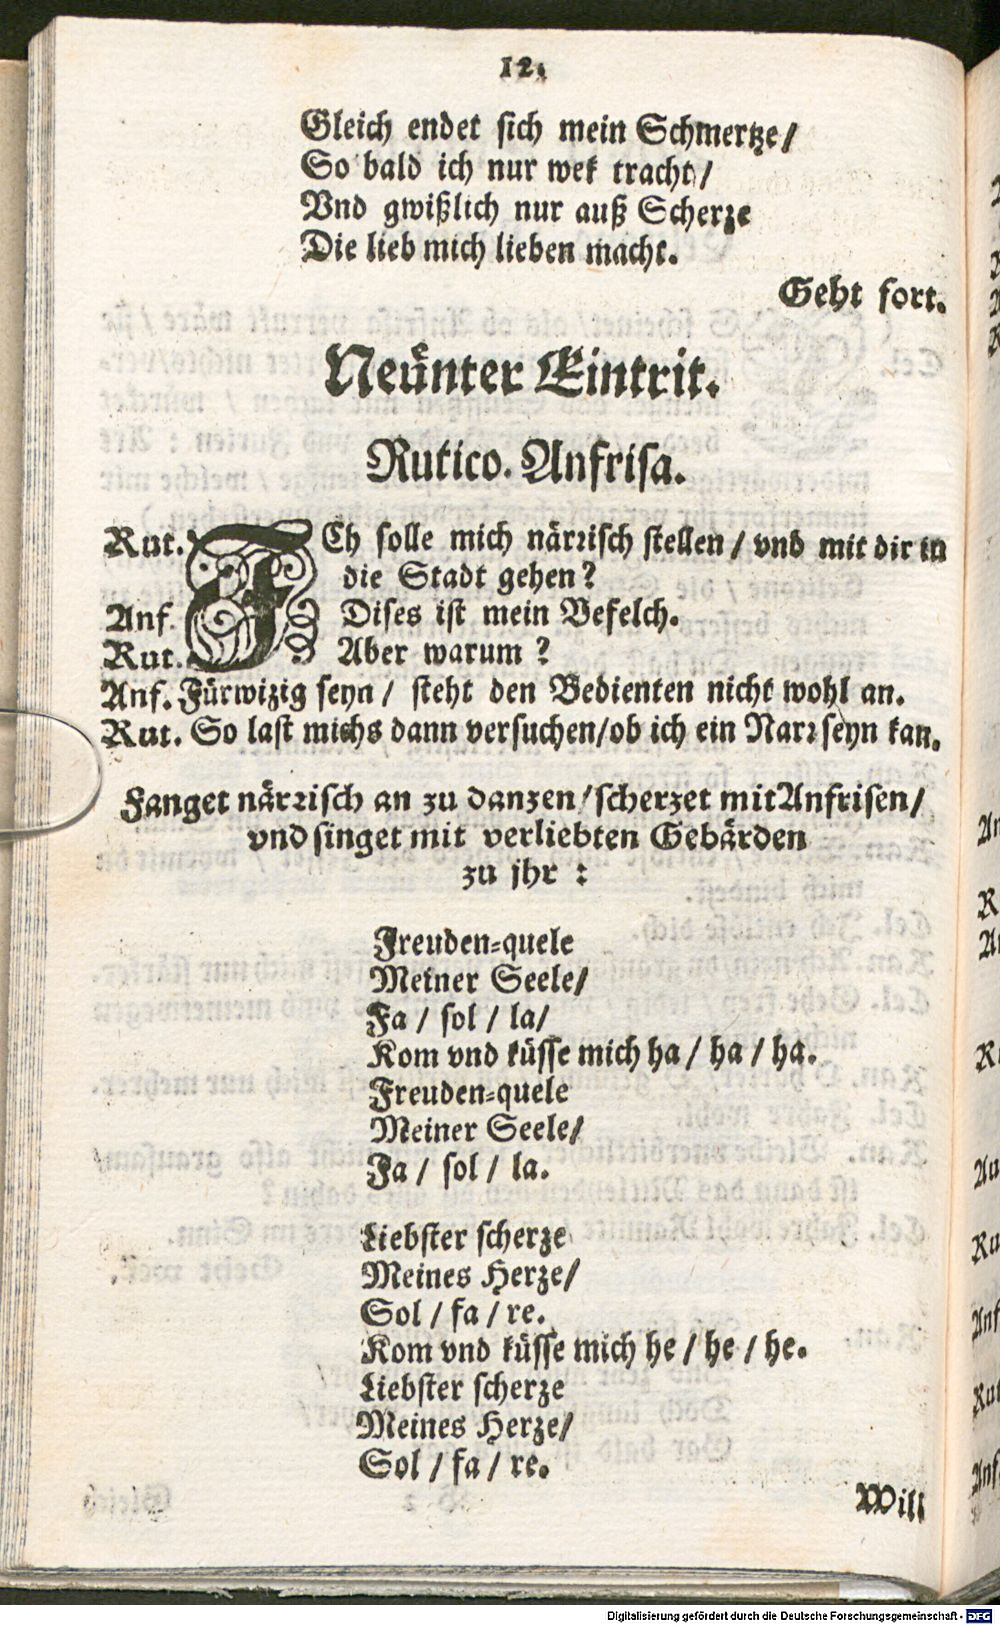 12.
Gleich endet sich mein Schmertze/
So bald ich nur wek tracht/
Vnd gwißlich nur auß Scherze
Die lieb mich lieben macht.
Geht fort.
Neünter Eintrit.
Rutico. Anfrisa.
Rut. ICh solle mich närrisch stellen / vnd mit dir in
die Stadt gehen?
Anf. Dises ist mein Befelch.
Rut. Aber warum?
Anf. Fürwizig seyn / steht den Bedienten nicht wohl an.
Rut. So last michs dann versuchen/ob ich ein Narr seyn kan.
Fanget närrisch an zu danzen/scherzet mit Anfrisen/
vnd singet mit verliebten Gebärden
zu jhr :
Freuden-quele
Meiner Seele/
Fa / sol / la/
Kom vnd küsse mich ha / ha / ha.
Freuden-quele
Meiner Seele/
Fa / sol / la.
Liebster scherze
Meines Herze/
Sol / fa / re.
Kom vnd küsse mich he / he / he.
Liebster scherze
Meines Herze/
Sol / fa / re.
Will
Digitalisierung gefördert durch die Deutsche Forschungsgemeinschaft - DFG